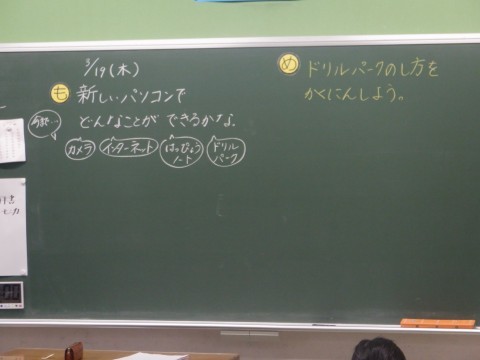 3/19(木)
も 新しいパソコンで
どんなことが できるかな。
カメラ
インターネット
はっぴょう
ノート
ドリル
パーク
め ドリルパークのし方を
かくにんしよう。